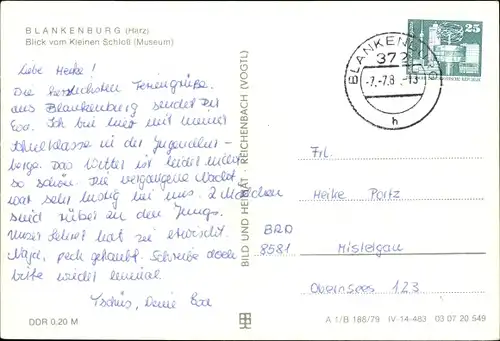 BLANKENBURG (Harz)
Blick vom Kleinen Schloß (Museum)
Liebe Heike!
Die herzlichsten Feriengrüße
aus Blankenburg sendet Dir
Eva. Ich bin hier mit meiner
Schulklasse in der Jugendher-
berge. Das Wetter ist leider nicht
so schön. Die vergangene Nacht
war sehr lustig bei uns. 2 Mädchen
sind rüber zu den Jungs.
Unser Lehrer hat sie erwischt.
Naja, pech gehabt. Schreibe doch
bitte wieder einmal
Tschüs, Deine Eva
DDR 0,20 M
BILD UND HEIMAT · REICHENBACH (VOGTL)
BLANKENBURG
372
-7.-7.8 -13
h
25
Frl.
Heike Poitz
BRD
8581 Mistelgau
Obernsees 123
A 1/B 188/79 IV-14-483 03 07 20 549